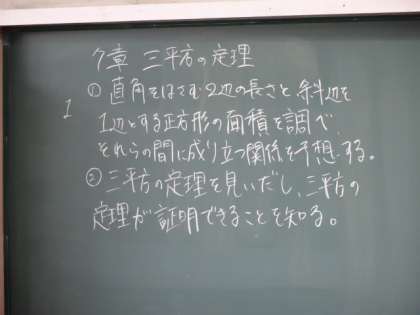 7章 三平方の定理
1 ① 直角をはさむ2辺の長さと斜辺を
1辺とする正方形の面積を調べ、
それらの間に成り立つ関係を予想する。
② 三平方の定理を見いだし、三平方の
定理が証明できることを知る。